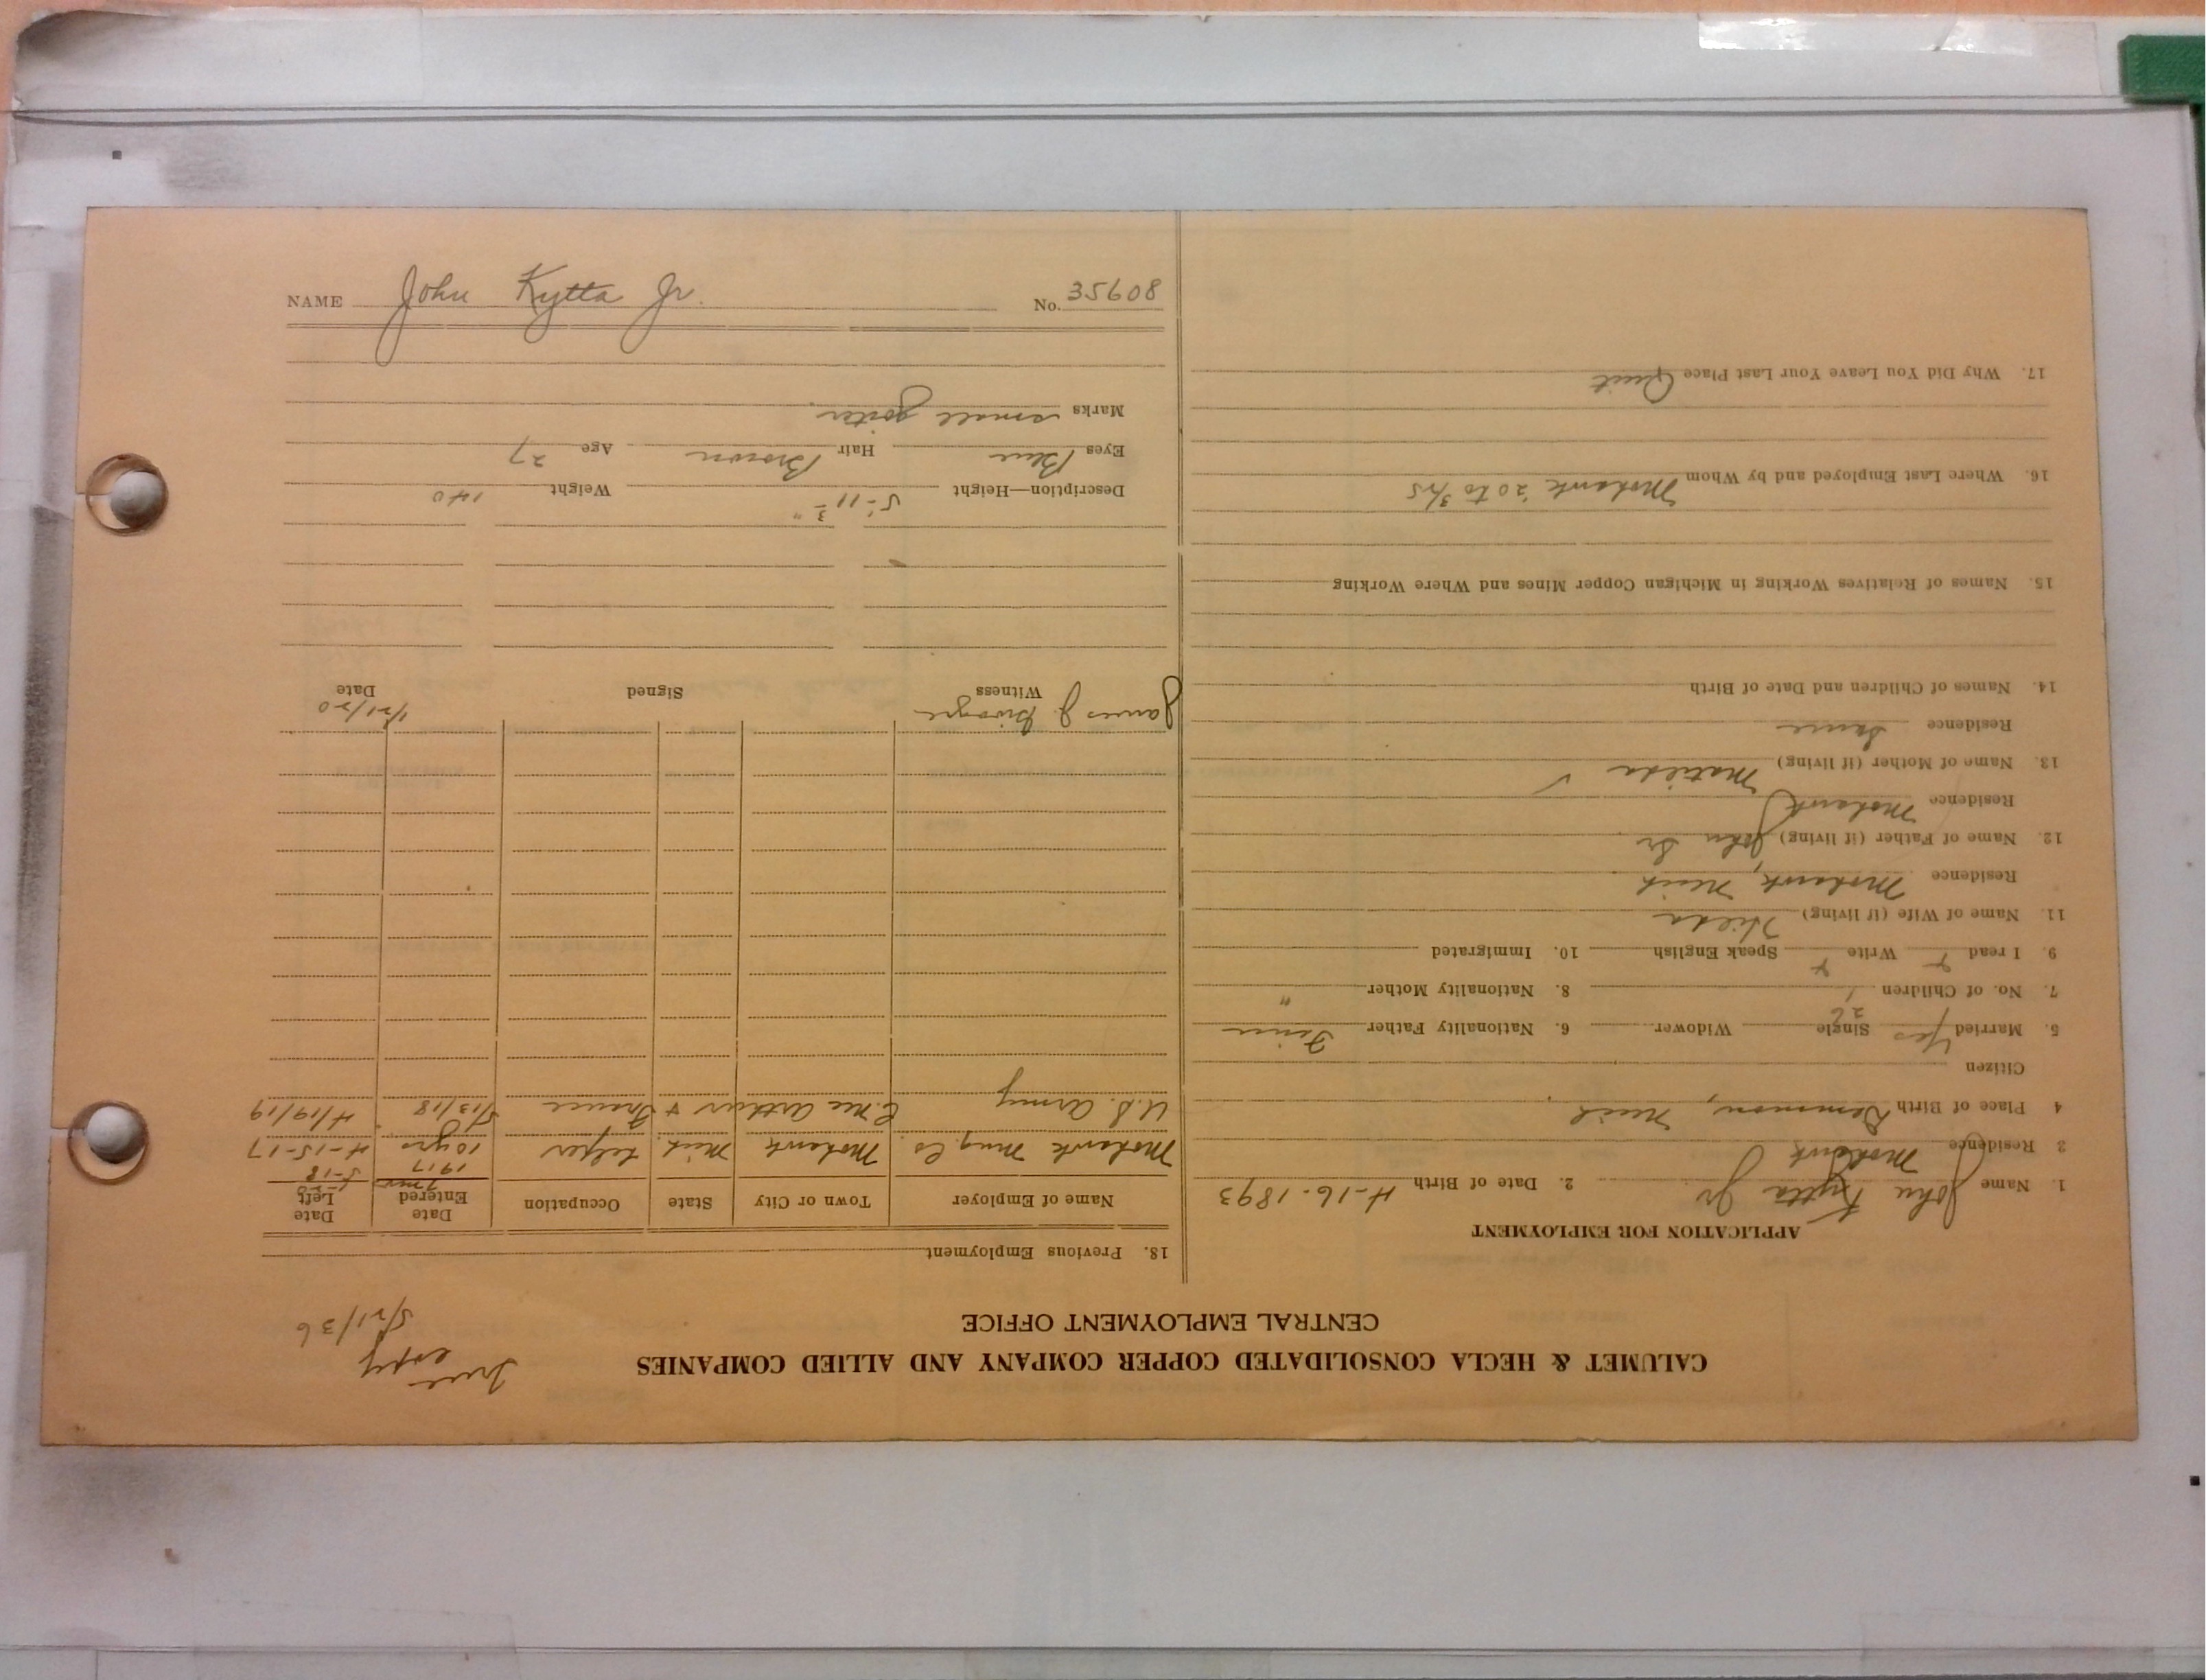 CALUMET & HECLA CONSOLIDATED COPPER COMPANY AND ALLIED COMPANIES
CENTRAL EMPLOYMENT OFFICE
True copy
5/21/36
APPLICATION FOR EMPLOYMENT
1. Name John Kytta Jr 2. Date of Birth 4-16-1893
3 Residence Mohawk
4 Place of Birth Mich
Citizen
5. Married Yes Single 26 Widower 6. Nationality Father Finn
7. No. of Children 1 8. Nationality Mother "
9. I read Y Write Y Speak English 10. Immigrated
11. Name of Wife (if living) Hilda
Residence Mohawk, Mich
12. Name of Father (if living) John Sr
Residence Mohawk
13. Name of Mother (if living) Matilda
Residence Same
14. Names of Children and Date of Birth
15. Names of Relatives Working in Michigan Copper Mines and Where Working
16. Where Last Employed and by Whom Mohawk '20 to 3/25
17. Why Did You Leave Your Last Place Quit
18. Previous Employment
Name of Employer Town or City State Occupation Date Entered Date Left
7 mos 1917 5-18
Mohawk Mng. Co. Mohawk Mich. 10 yrs 4-15-17
U.S. Army C. Mc Arthur & France 5/13/18 4/19/19
James J.
Witness Signed Date
1/21/20
Description—Height 5'-11 3" Weight 140
Eyes Blue Hair Brown Age 27
Marks small goiter.
NAME John Kytta Jr. No. 35608